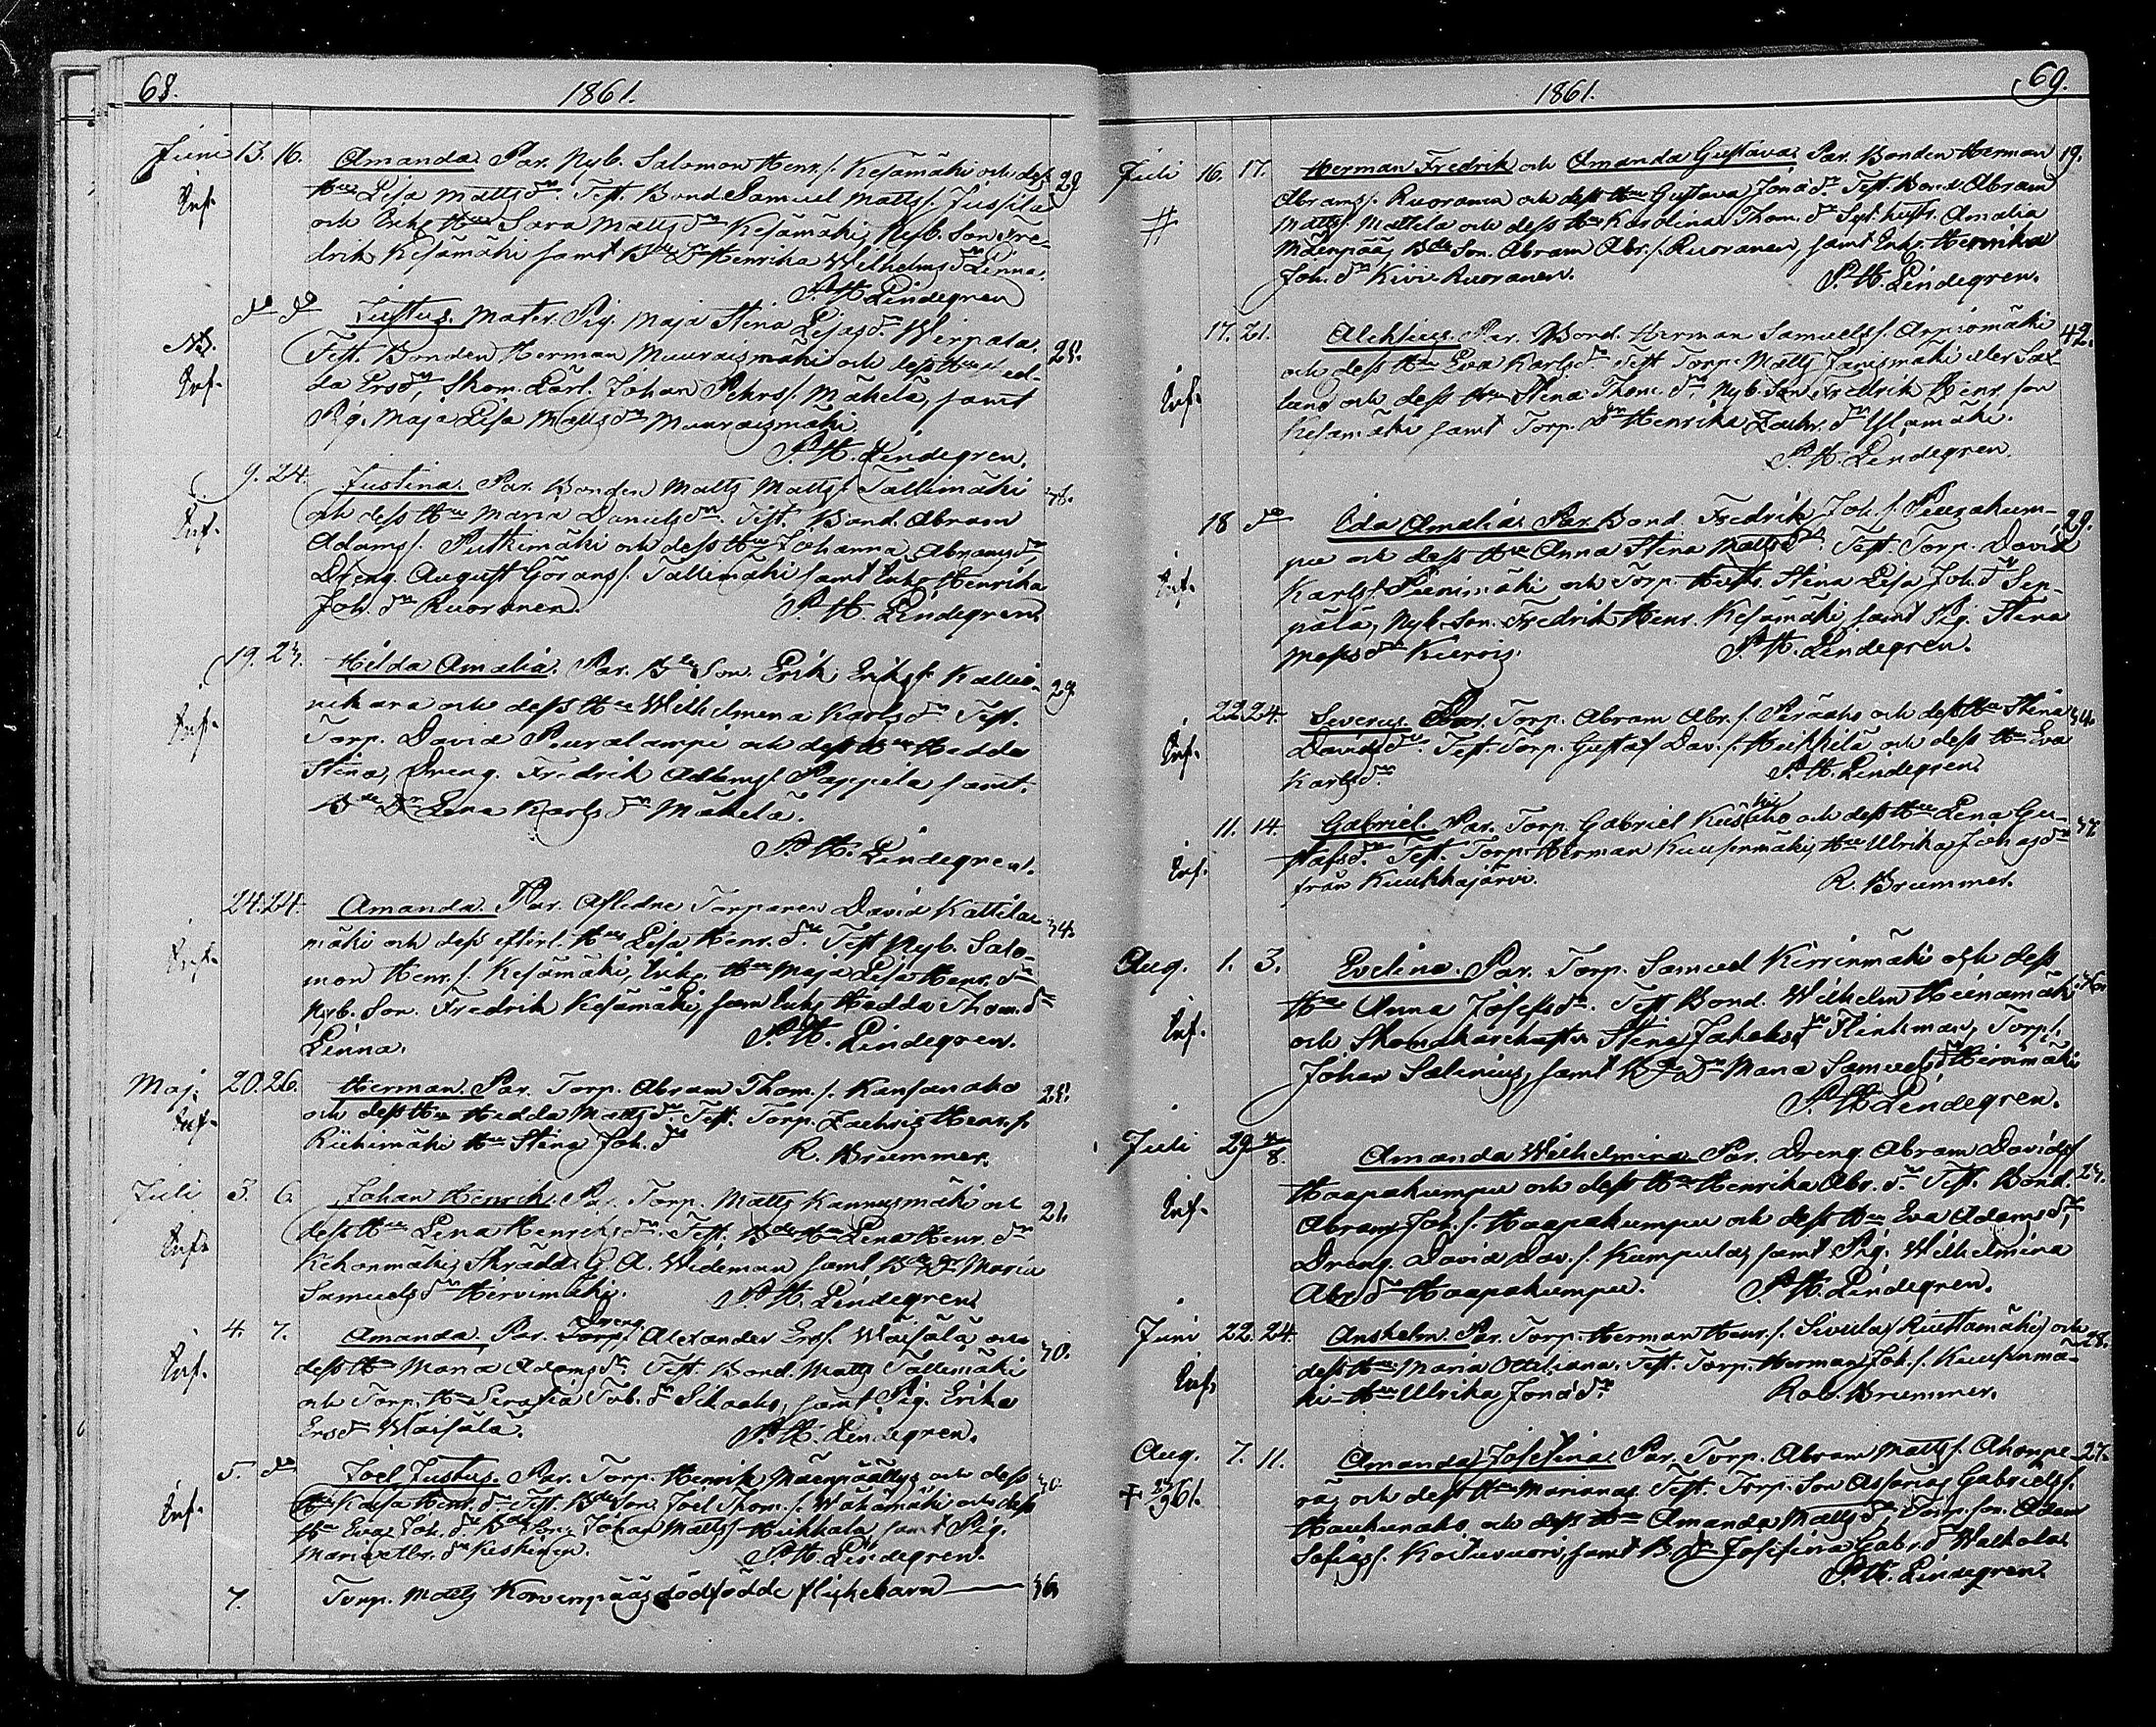 68. 1861.
Juni 13. 16. Amanda. Par. Nyb. Salomon Henr. s. Kesämäki och dess 29
Inf. Hu Lisa Mattsdr. Test. Bond Samuel Matts s. Jussila
och Enk. Hu Sara Matts dr Kesämäki, Nyb. Son Fre-
drik Kesämäki samt Bde Dr Henrika Wilhelms dr Linna.
P. H. Lindegren
do do Justus. Mater. Pig. Maja Stina Lisas dr Wirpala.
NB. Test. Bonden Herman Muuraismäki och dess Hu Hed- 25.
Inf. da Ersdr, Skom. Lärl. Johan Pehrs s. Mäkelä, samt
Pig. Maja Lisa Matts dr Muuraismäki
P. H. Lindegren.
9. 24. Justina. Par. Bonden Matts Matts s. Tallimäki
Inf. och dess Hu Maria Daniels dr. Test. Bond. Abram
Adams s. Putkimäki och dess Hu Johanna Abrams dr
Dreng. August Görans s. Tallimäki samt Enk. Henrika
Joh. dr Kuoranen. P. H. Lindegren
19. 23. Hilda Amalia. Par. Bde Son. Erik Eriks s. Kallio- 29.
Inf. och dess Hu Wilhelmina Karls dr Test.
Torp. David Peuralampi och dess Hu Hedda
Stina, Dreng. Fredrik Adams s. Pappila samt
Bde Dr Lena Karls dr Mäkelä.
P. H. Lindegren.
24. 24. Amanda. Par. Aflidne Torparen David Kattila- 34.
Inf. mäki och dess efterl. Hu Lisa Henr. dr. Test Nyb. Salo-
mon Henr. s. Kesämäki, Enk. Hu Maja Lisa Henr. dr
Nyb. Son. Fredrik Kesämäki, sam Enk. Hedda Thom. dr
Linna. P. H. Lindegren.
Maj. 20. 26. Herman. Par. Torp. Abram Thom. s. Kansanaho 25.
Inf. och dess Hu Hedda Matts dr. Test. Torp. Zachris Henr. s.
Riihimäki Hu Stina Joh. dr R. Brummer.
Juli 3. 6. Johan Henrik. Par. Torp. Matts Kannusmäki och 21.
Inf. dess Hu Lena Henriks dr. Test. Bde Hu Lena Henr. dr
Kekonmäki, Skrädd. G. A. Wideman samt Bde Dr Maria
Samuels dr Hirvimäki. P. H. Lindegren.
4. 7. Amanda. Par. Torp. Dreng. Alexander Ers s. Waisälä och 30.
Inf. dess Hu Maria Adams dr Test. Bond. Matts Tallimäki
och Torp. Hu Serafia Tob. dr Sikaaho, samt Pig. Erika
Ersdr Waisälä. P. H. Lindegren.
5. do Joel Justus. Par. Torp. Henrik Mäenpää och dess 30.
Inf. Hu Kaisa Henr. dr Test. Bde Son. Joel Thom. s. Wähämäki och dess
Hu Eva Joh. dr Bde Son. Johan Matts s. Heikkala, samt Pig.
Maria dr Keskinen. P. H. Lindegren.
7. Torp. Matts Korvenpääs dödfödde flickebarn 36
1861. 69.
Juli 16. 17. Herman Fredrik och Amanda Gustava. Par. Bonden Herman 19.
# Abrams s. Kuoranen och dess Hu Gustava Jonä dr Test. Bond Abram
Matts s. Mattila och dess Hu Karolina Thom. dr Syt. hust. Amalia
Mäenpää, Bde Son. Abram Abr. s. Kuoranen, samt Enk. Henrika
Joh. dr Kivi-Kuoranen. P. H. Lindegren.
17. 21. Alexius. Par. Bond. Herman Samuels s. Arpiomäki 42.
Inf. och dess Hu Eva Karls dr. Test Torp. Matts Janismäki eller Sax-
lund och dess Hu Stina Thom. dr, Nyb. Son Fredrik Henr. son
Kesämäki samt Torp. Dr Henrika Zachr. dr
P. H. Lindegren.
18 do Ida Amalia. Par. Bond. Fredrik Joh. s. Peurakum- 29.
Inf. pu och dess Hu Anna Stina Matts dr. Test. Torp. David
Karls s. Pienimäki och Torp. Hust. Stina Lisa Joh. dr Sep-
pälä, Nyb. Son. Fredrik Henr. Kesämäki samt Pig. Stina
P. H. Lindegren.
22. 24. Severus. Par. Torp. Abram Abr. s. Peräaho och dess Hu Stina 34.
Inf. Davids dr. Test. Torp. Gustaf Dav. s. Heikkilä och dess Hu Eva
Karls dr P. H. Lindegren.
11. 14. Gabriel. Par. Torp. Gabriel och dess Hu Lena Gu-
Inf. stafs dr. Test. Torp. Herman Kuusenmäki, Hu Ulrika Jonas dr
från Kuukkajärvi. R. Brummer.
Aug. 1. 3. Evelina. Par. Torp. Samuel Kirrinmäki och dess
Inf. Hu Anna Josefs dr. Test. Bond. Wilhelm Heinämäki
och Skomakarehustru Stina Jakobs dr Flinkman, Torpl.
Johan Salinius, samt Bde Dr Maria Samuels dr Hirvimäki
P. H. Lindegren.
Juli 29 4/8. Amanda Wilhelmina Par. Dreng Abram Davids s.
Inf. Haapakumpu och dess Hu Henrika Abr. dr. Test. Bond. 27.
Abram Joh. s. Haapakumpu och dess Hu Eva Adams dr,
Dreng. David Dav. s. Kumpula, samt Pig. Wilhelmina
Abr. dr Haapakumpu. P. H. Lindegren.
Juni 22. 24. Anshelm. Par. Torp. Herman Henr. s. Sivula (Riuttamäki) och 28.
Inf. dess Hu Maria Ottiliana. Test. Torp. Herman Joh. s. Kuusenmä-
ki Hu Ulrika Jonä dr Rob. Brummer.
Aug. 7. 11. Amanda Josefina Par. Torp. Abram Matts s. Ahonpe- 27.
rä, och dess Hu Mariana. Test. Torp. Son Assarias Gabriels s.
Haukunaho, och dess Hu Amanda Matts dr, Torp. son. Adam
Sofias s. Koivuvuori, samt B. Dr Josefina Gabr. dr Walkola
P. H. Lindegren.